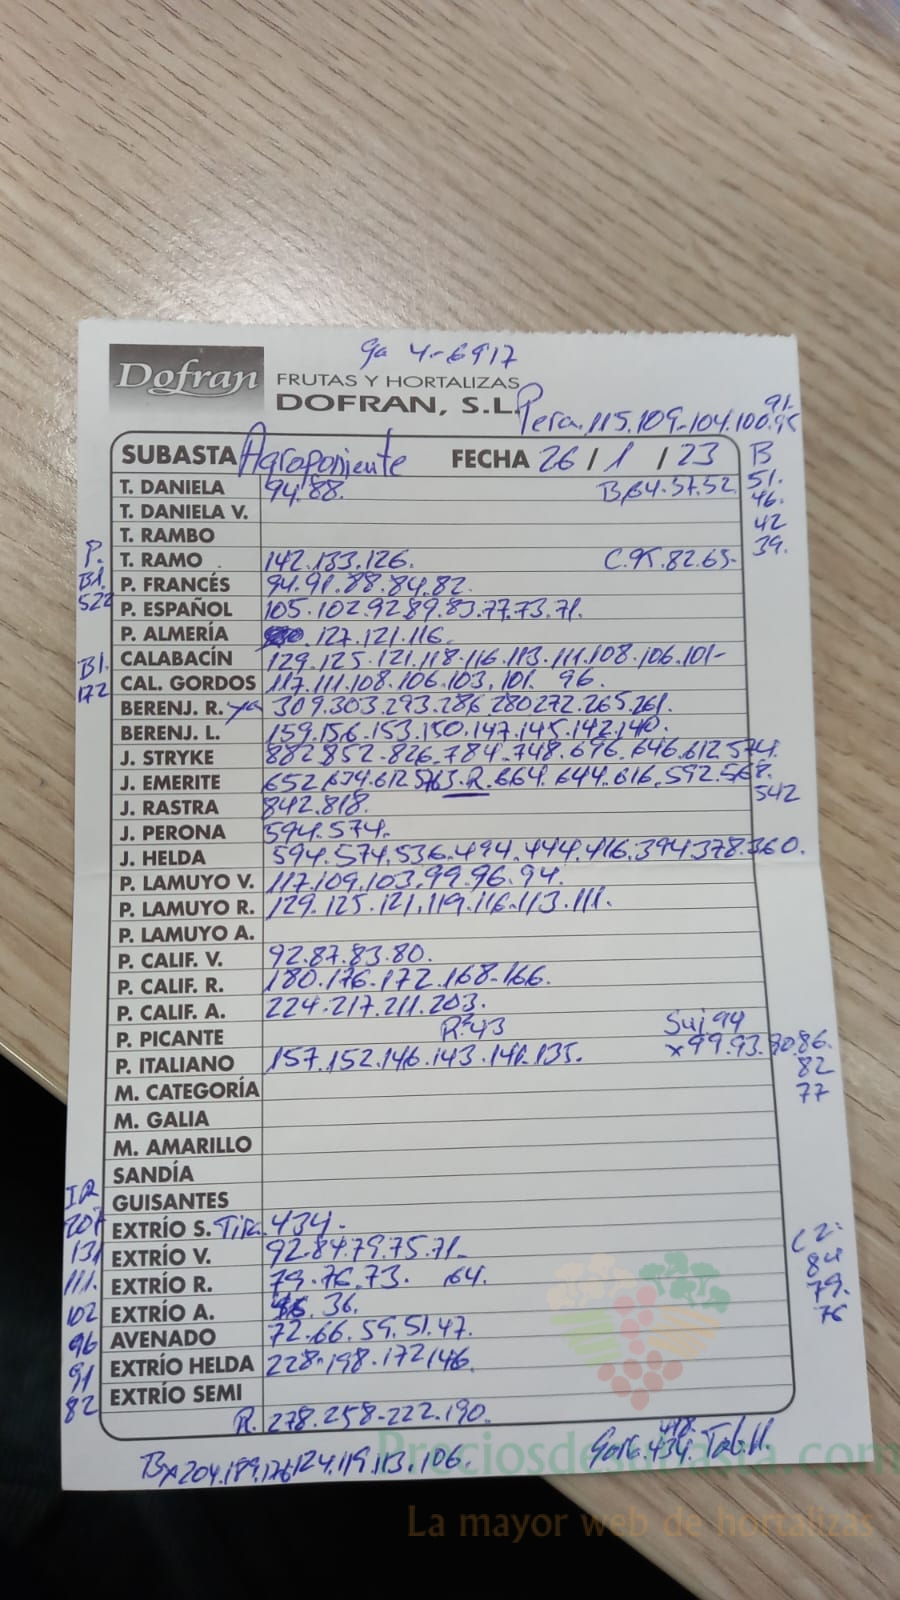 Dofran
FRUTAS Y HORTALIZAS
DOFRAN, S.L.
Pera.115.109.104.100.95
91.
SUBASTA Agroponiente FECHA 26 / 1 / 23 B
51.
46.
42
39.
T. DANIELA 94.88. B,64.57.52.
T. DANIELA V.
T. RAMBO
T. RAMO 142.133.126. C.95.82.65-
P.
B1.
522
P. FRANCÉS 94.91.88.84.82.
P. ESPAÑOL 105.102.92.89.83.77.73.71.
P. ALMERÍA .127.121.116.
CALABACÍN 129.125.121.118.116.113.111.108.106.101-
B1.
172
CAL. GORDOS 117.111.108.106.103.101. 96.
BERENJ. R. 309.303.293.286.280.272.265.261.
BERENJ. L. 159.156.153.150.147.145.142.140.
J. STRYKE 882.852.826.784.748.696.646.612.574.
J. EMERITE 652.634.612.563.R.664.644.616.592.568.
542
J. RASTRA 842.818.
J. PERONA 594.574.
J. HELDA 594.574.536.494.444.416.394.378.360.
P. LAMUYO V. 117.109.103.99.96.94.
P. LAMUYO R. 129.125.121.119.116.113.111.
P. LAMUYO A.
P. CALIF. V. 92.87.83.80.
P. CALIF. R. 180.176.172.168.166.
P. CALIF. A. 224.217.211.203.
P. PICANTE Rª43 94
P. ITALIANO 157.152.146.143.141.135. x99.93.90.86.
82
77
M. CATEGORÍA
M. GALIA
M. AMARILLO
SANDÍA
GUISANTES
EXTRÍO S. 434.
EXTRÍO V. 92.84.79.75.71.
EXTRÍO R. 79.76.73. 64.
EXTRÍO A. 36.
AVENADO 72.66.59.51.47.
EXTRÍO HELDA 228.198.172.146.
EXTRÍO SEMI
131
111.
102
96
91
82
84
79.
76
R. 278.258-222.190.
Preciosdesubasta.com
La mayor web de hortalizas